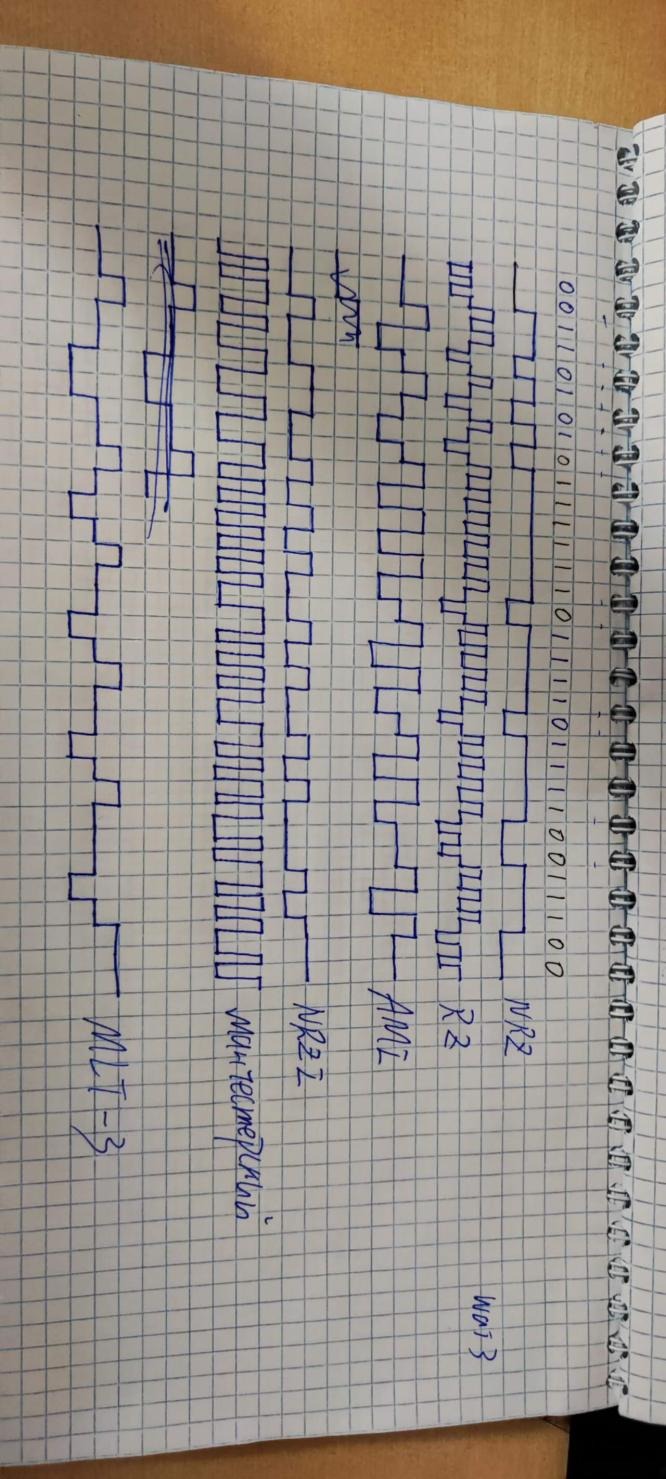 0 0 1 1 0 1 0 1 0 1 1 1 1 1 1 0 1 1 1 1 0 1 1 1 1 0 0 1 1 1 0 0
NRZ
RZ
AMI
NRZI
Манчестерский
MLT-3